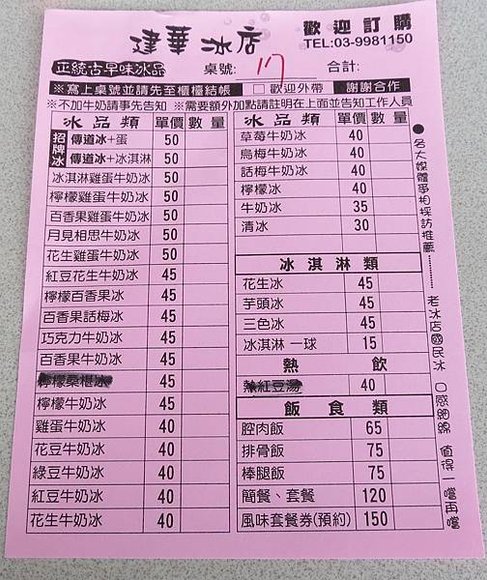 建華冰店
歡迎訂購
TEL:03-9981150
正統古早味冰品
桌號: 17
合計:
※寫上桌號並請先至櫃檯結帳
□歡迎外帶
謝謝合作
※不加牛奶請事先告知 ※需要額外加點請註明在上面並告知工作人員
冰品類 單價 數量
招牌冰
傳道冰+蛋 50
傳道冰+冰淇淋 50
冰淇淋雞蛋牛奶冰 50
檸檬雞蛋牛奶冰 50
百香果雞蛋牛奶冰 50
月見相思牛奶冰 50
花生雞蛋牛奶冰 50
紅豆花生牛奶冰 45
檸檬百香果冰 45
百香果話梅冰 45
巧克力牛奶冰 45
百香果牛奶冰 45
檸檬桑椹冰 45
檸檬牛奶冰 45
雞蛋牛奶冰 40
花豆牛奶冰 40
綠豆牛奶冰 40
紅豆牛奶冰 40
花生牛奶冰 40
冰品類 單價 數量
草莓牛奶冰 40
烏梅牛奶冰 40
話梅牛奶冰 40
檸檬冰 40
牛奶冰 35
清冰 30
冰淇淋類
花生冰 45
芋頭冰 45
三色冰 45
冰淇淋 一球 15
熱飲
紅豆湯 40
飯食類
腔肉飯 65
排骨飯 75
棒腿飯 75
簡餐、套餐 120
風味套餐券(預約) 150
●各大媒體爭相採訪推薦………老冰店國民冰 口感細綿 值得一嚐再嚐